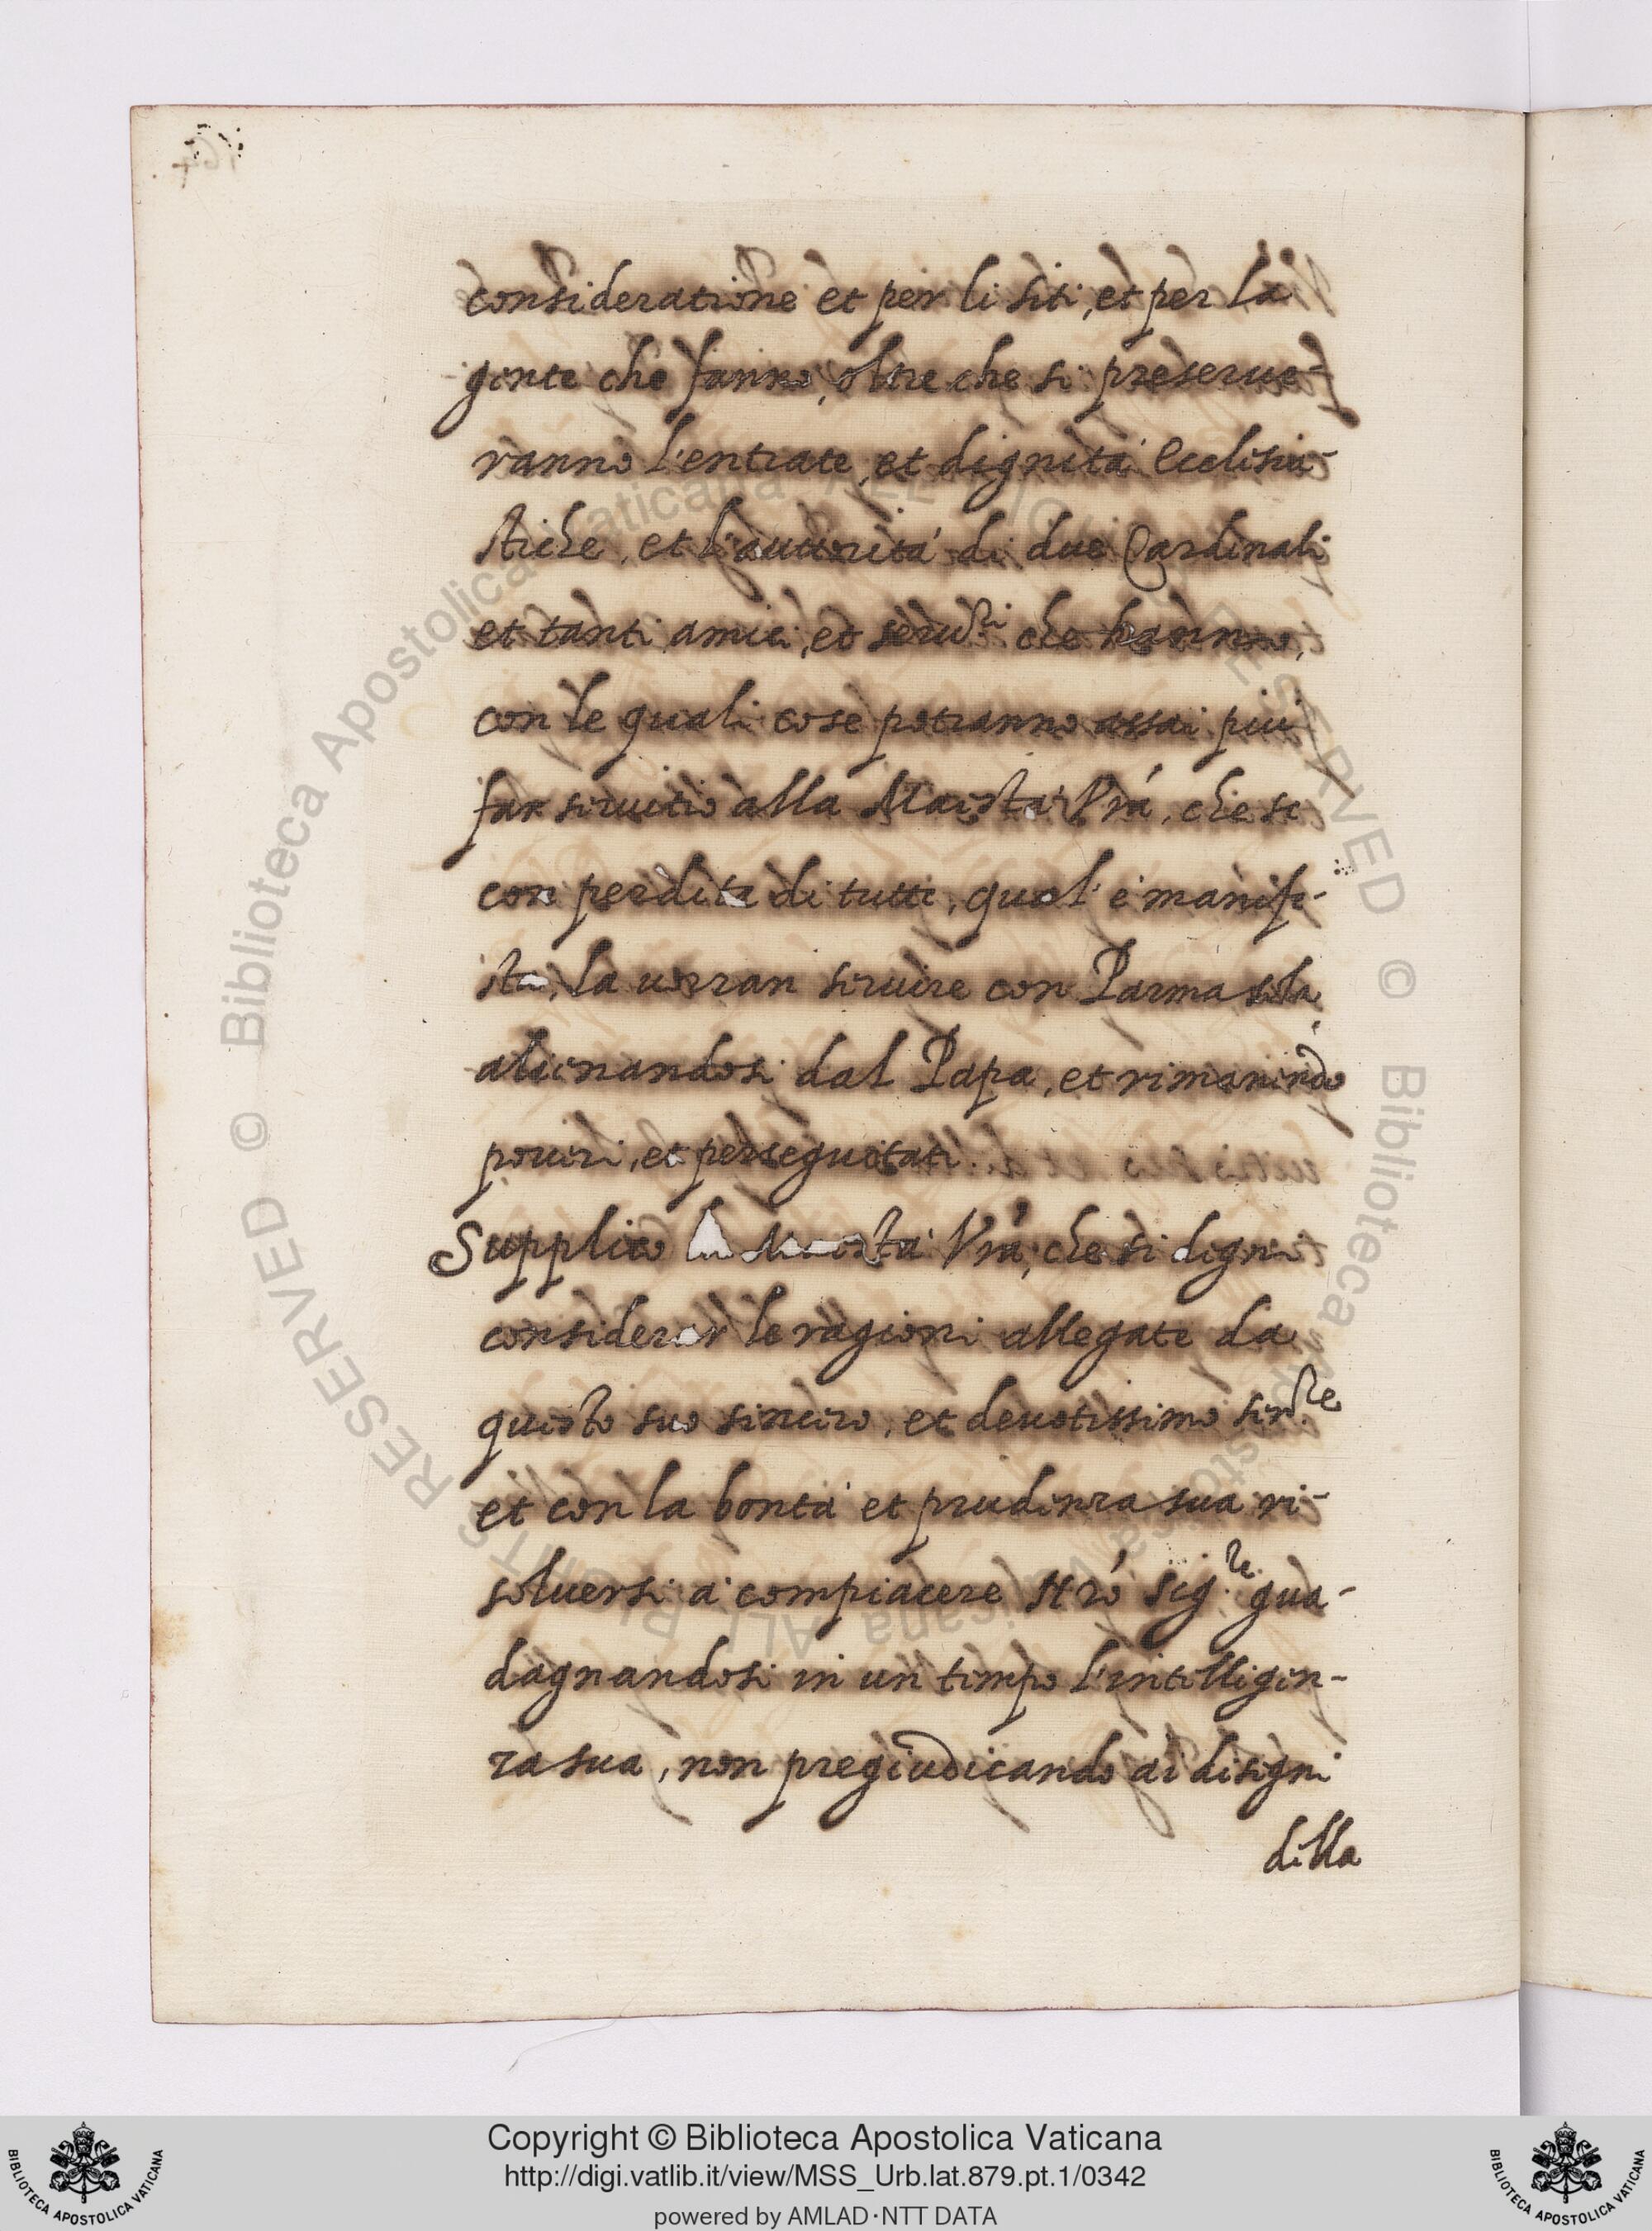 consideratione et per li siti, et per la
gente che fanno, oltre che si preserue-
ranno l'entrate, et dignità Ecclesia-
stiche, et l'auttorità di due Cardinali
et tanti amici, et seru.ri che hanno,
con le quali cose potranno assai più
far seruitio alla Maestà Vrá, che se
con perdita di tutti, qual'è manife-
sta, la uorran seruire con Parma sola
alienandosi dal Papa, et rimanendo
poueri, et perseguotati.
Supplico la Maestà Vrá, che si degni
considerar le ragioni allegate da
questo suo sincero, et deuotissimo ser.re
et con la bontà et prudenza sua ri-
soluersi à compiacere Nró Sig.re gua-
dagnandosi in un tempo l'intelligen-
za sua, non pregiudicando ai disegni
della
Copyright © Biblioteca Apostolica Vaticana
http://digi.vatlib.it/view/MSS_Urb.lat.879.pt.1/0342
powered by AMLAD·NTT DATA
BIBLIOTECA APOSTOLICA VATICANA
BIBLIOTECA APOSTOLICA VATICANA